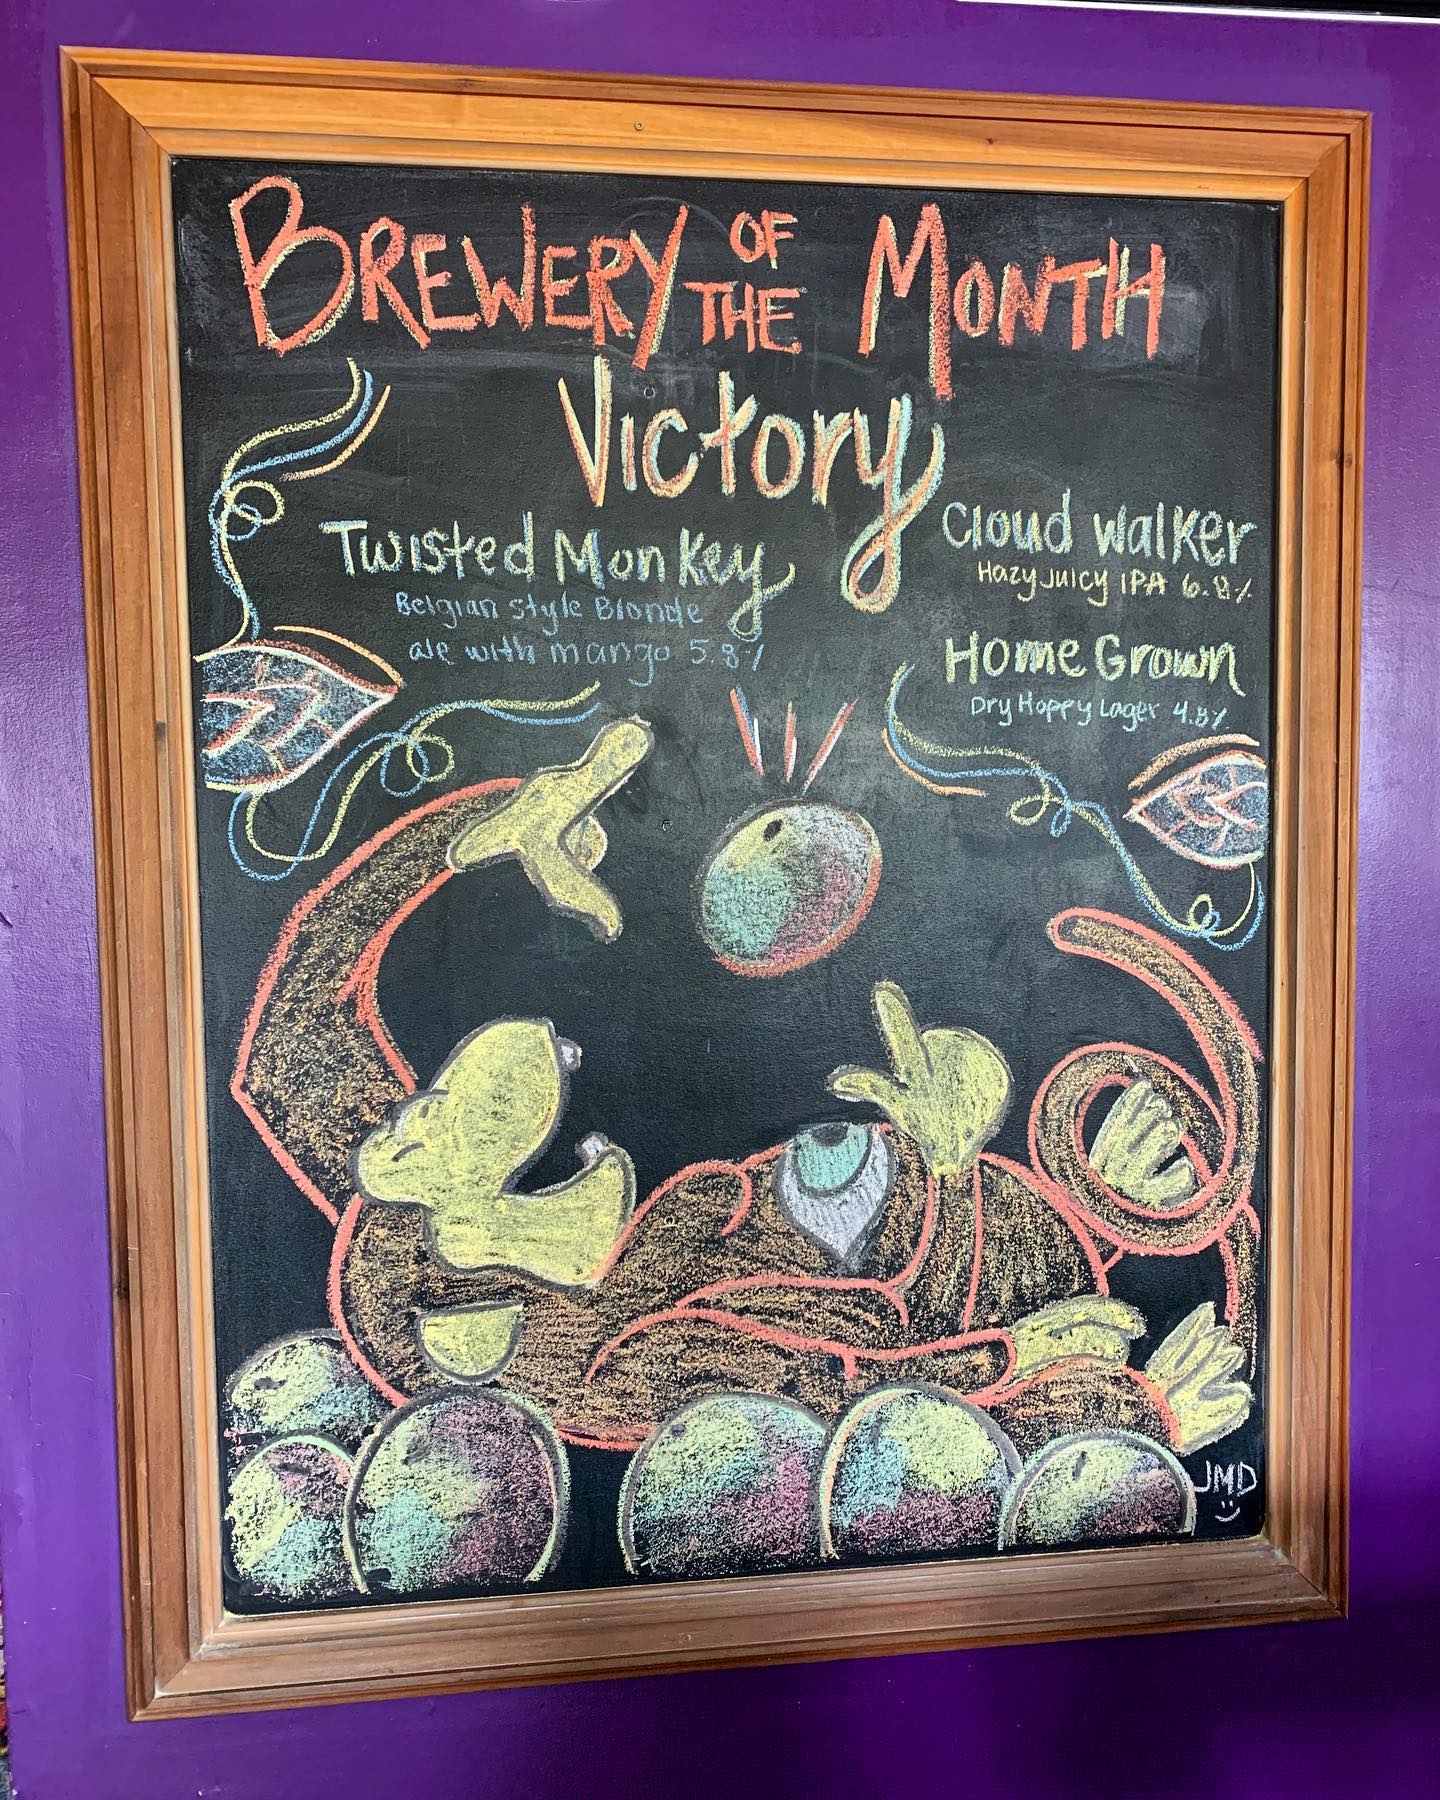 BREWERY OF THE MONTH
Victory
Twisted Monkey
Belgian Style Blonde
ale with mango 5.8%
Cloud Walker
Hazy Juicy IPA 6.8%
Home Grown
Dry Hoppy Lager 4.8%
JMD